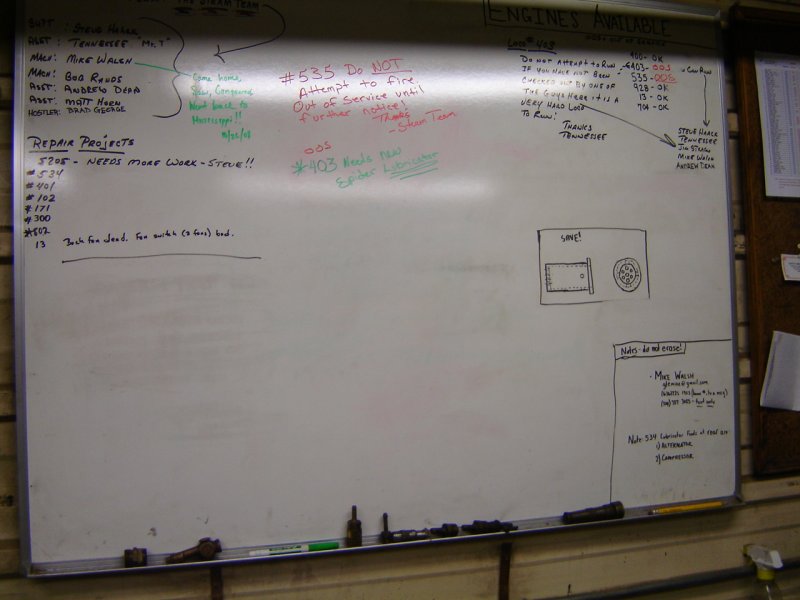 THE STEAM TEAM
SUPT: STEVE HAACK
ASST: TENNESSEE "MR. T"
MACH: MIKE WALSH
MACH: BOB RANDS
ASST: ANDREW DEAN
ASST: MATT HORN
HOSTLER: BRAD GEORGE
Came home,
Saw, Conquered
Went back to
Mississippi!!
REPAIR PROJECTS
5205 - NEEDS MORE WORK - STEVE!!
# 534
# 401
# 102
# 171
# 300
#802
13 Back fan dead. Fan switch (2 fans) bad.
#535 Do NOT
Attempt to fire
Out of Service until
further notice!
- Thanks
- Steam Team
OOS
#403 Needs new
Spider Lubricator
ENGINES AVAILABLE
LOCO # 403
DO NOT ATTEMPT TO RUN
IF YOU HAVE NOT BEEN
CHECKED OUT BY ONE OF
THE GUYS HERE. IT IS A
VERY HARD LOCO
TO RUN!
THANKS
TENNESSEE
400 - OK
403 - OOS
535 - OOS
928 - OK
13 - OK
704 - OK
CAN RUN
STEVE HAACK
TENNESSEE
JIM STRAW
MIKE WALSH
ANDREW DEAN
SAVE!
Notes - do not erase!
- MIKE WALSH
Note: 534 Lubricator Feeds at rear are:
1) ALTERNATOR
2) COMPRESSOR